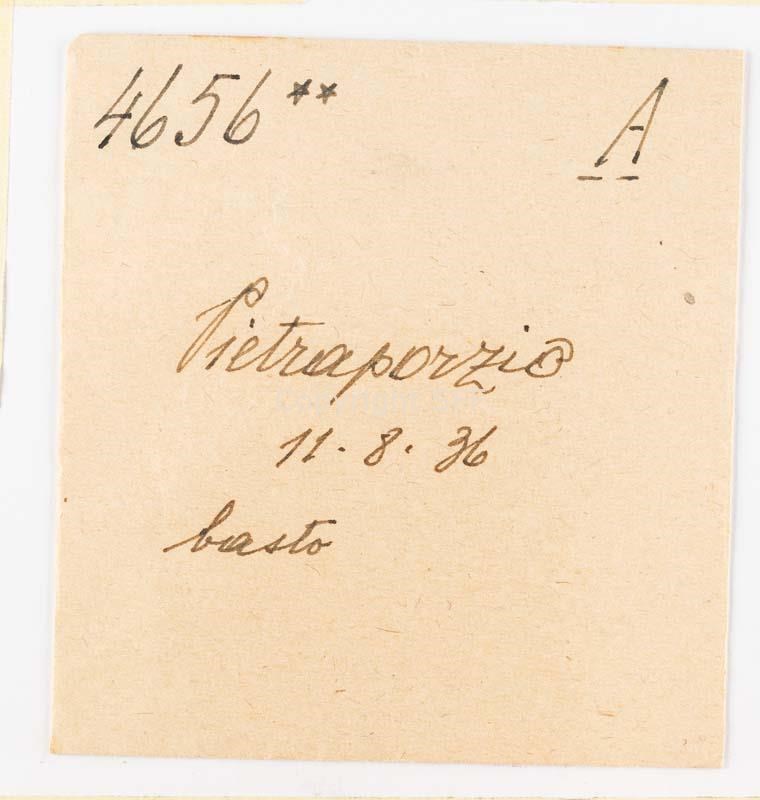 4656** A
Pietraporzio
11 · 8 · 36
basto